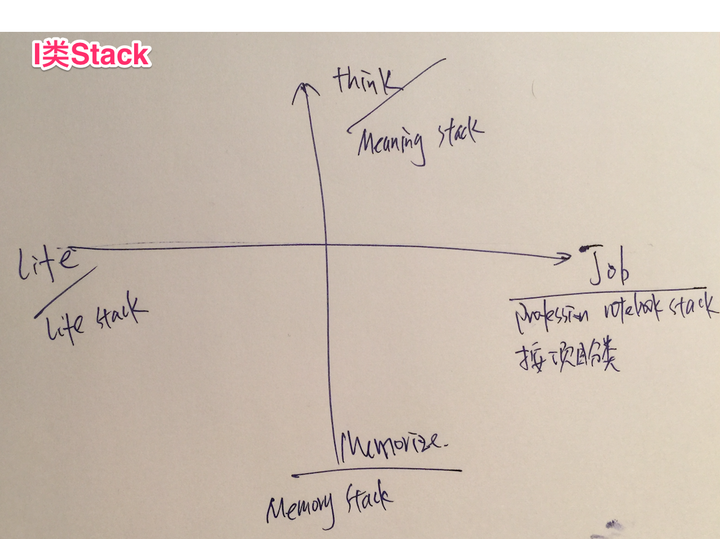 I类Stack
think
Meaning stack
Life
Life stack
Job
profession notebook stack
按项目分类
Memorize.
Memory stack